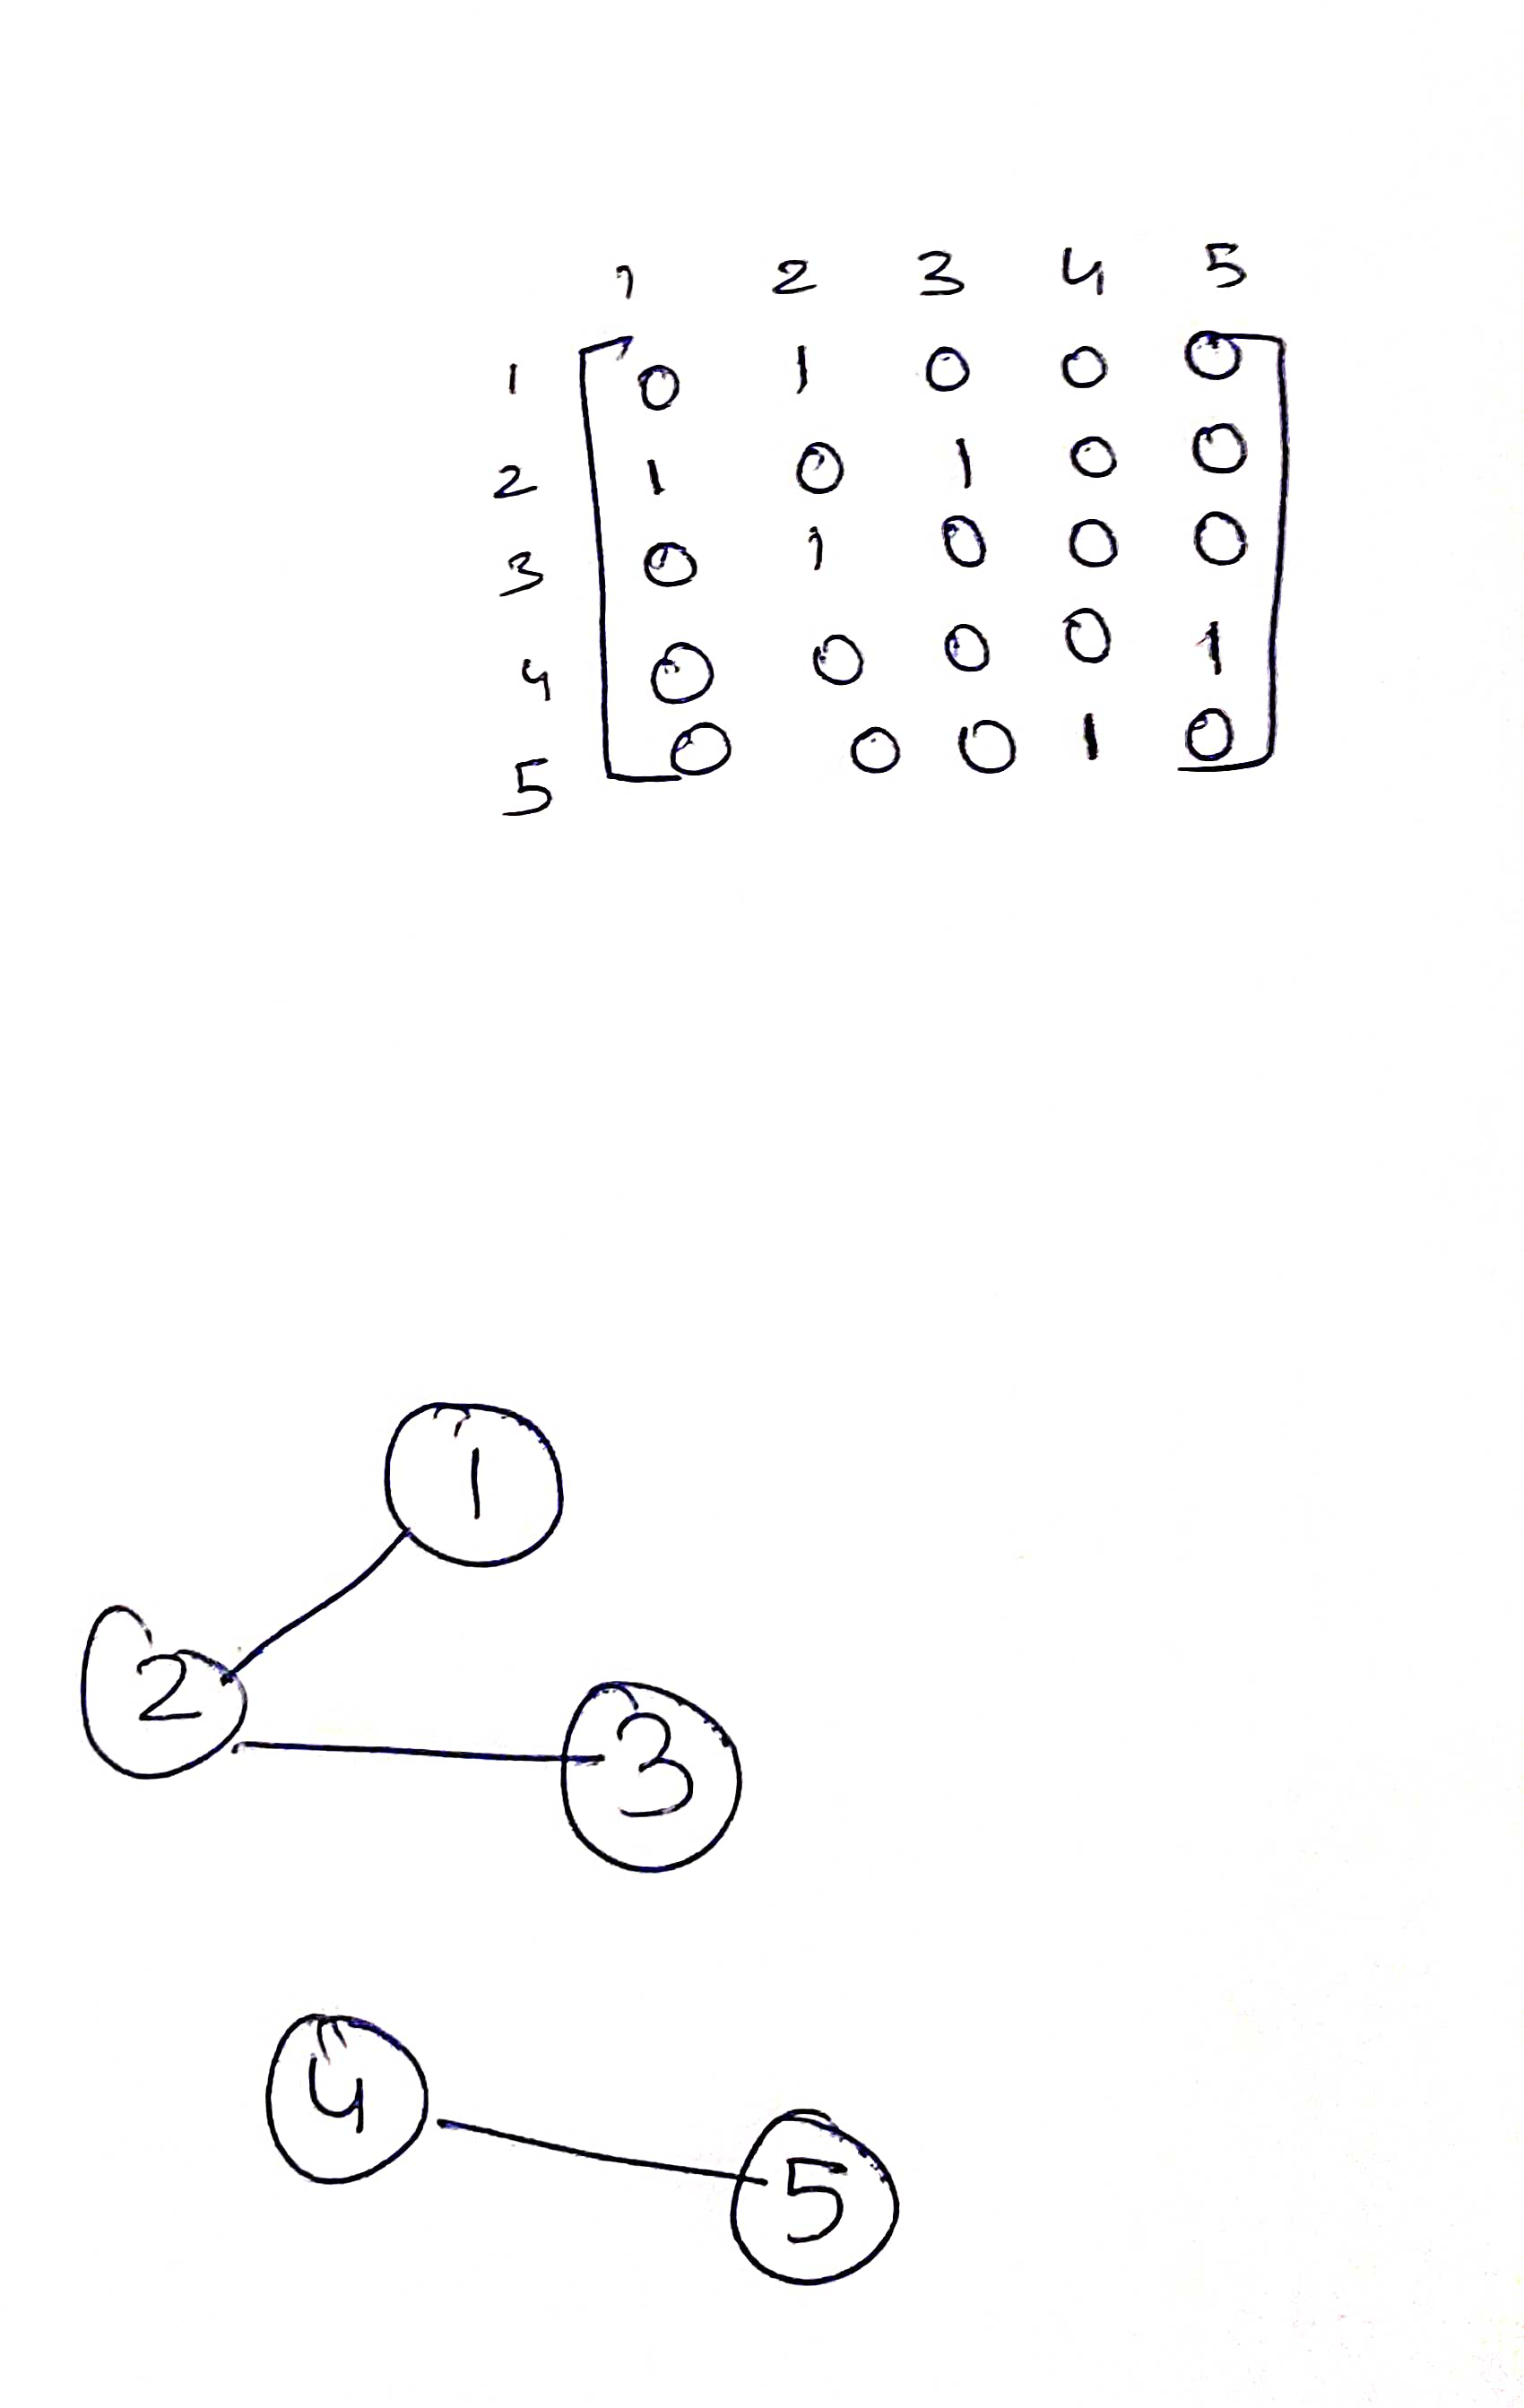 1 2 3 4 5
1 0 1 0 0 0
2 1 0 1 0 0
3 0 1 0 0 0
4 0 0 0 0 1
5 0 0 0 1 0
1
2
3
4
5